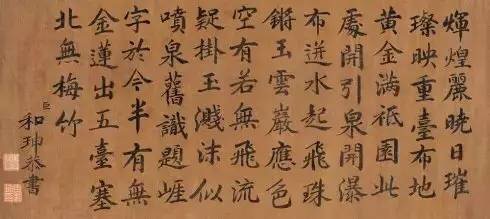 煇煌麗曉日璀
璨映重臺布地
黃金滿祇園此
處開引泉開瀑
布迸水起飛珠
鏘玉雲巖應色
空有若無飛流
疑掛玉濺沫似
噴泉舊識題崕
字於今半有無
金蓮出五臺塞
北無梅竹
臣和珅恭書